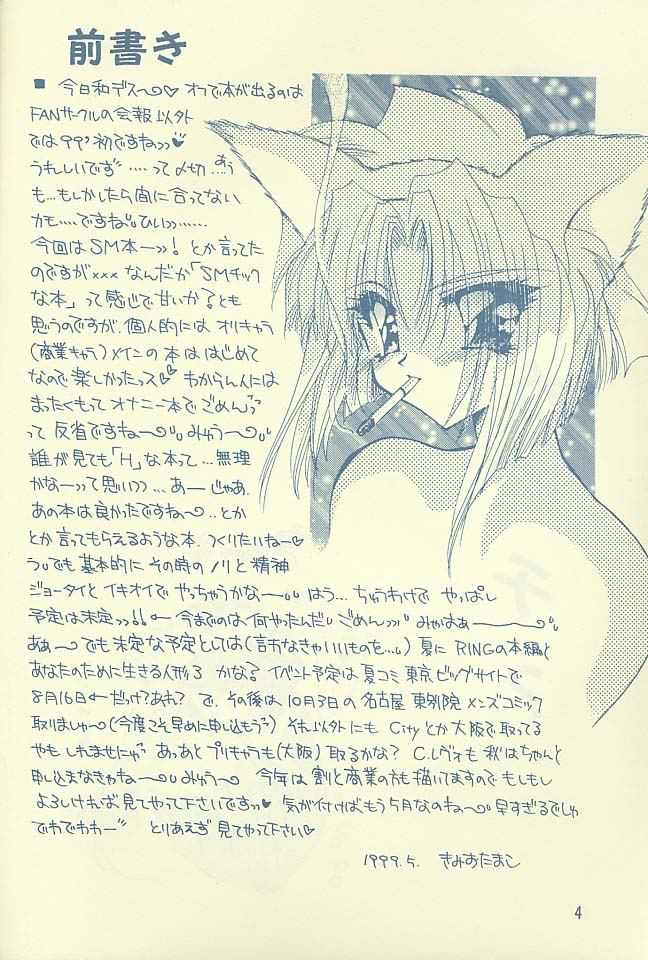 前書き
■ 今日和デス～♡ オフで本が出るのは
FANサークルの会報以外
では99'初ですね>>♥
うれしいです ‥‥って〆切‥‥あう
も…もしかしたら間に合ってない
カモ‥‥ですね ひい>>……
今回はSM本ー>>! とか言ってた
のですが××× なんだか「SMチック
な本」って感じで甘いか?とも
思うのですが、個人的には オリキャラ
(商業キャラ)メインの本は はじめて
なので楽しかったっス♡ わからん人には
まったくもって オナニー本でごめんっ
って 反省ですね～ みゅう～
誰が見ても「H」な本って…無理
かなーって思い>>…あー じゃあ
あの本は良かったですね～‥とか
とか言ってもらえるような本、つくりたいねー♡
う でも 基本的に その時の ノリと精神
ジョータイと イキオイで やっちゃうかな～ はう… ちゅうわけで やっぱし
予定は未定>>!! ← 今までのは何やったんだ ごめん>> みゃはぁー
あぁ～ でも未定な予定としては(言わなきゃいいものを…) 夏に RINGの本編と
あなたのために生きる人形3 かな? イベント予定は 夏コミ 東京ビッグサイトで
8月16日←だっけ?あき? で、その後は 10月3日の 名古屋 東別院 メンズコミック
取りましゅ～(今度こそ早めに申し込もうっ) それ以外にも Cityとか大阪で取ってる
やも しれませにゃっ あっあと プリキャラも(大阪)取るかな? C.レヴォも 秋はちゃんと
申し込まなきゃね～ みゅう～ 今年は 割と商業の方も 描いてますので もしもし
よろしければ 見てやって下さいです>>♥ 気が付けば もう5月なのね～ 早すぎるでしゅ
でわでわわー とりあえず 見てやって下さい♡
1999.5. きみおたまこ
4